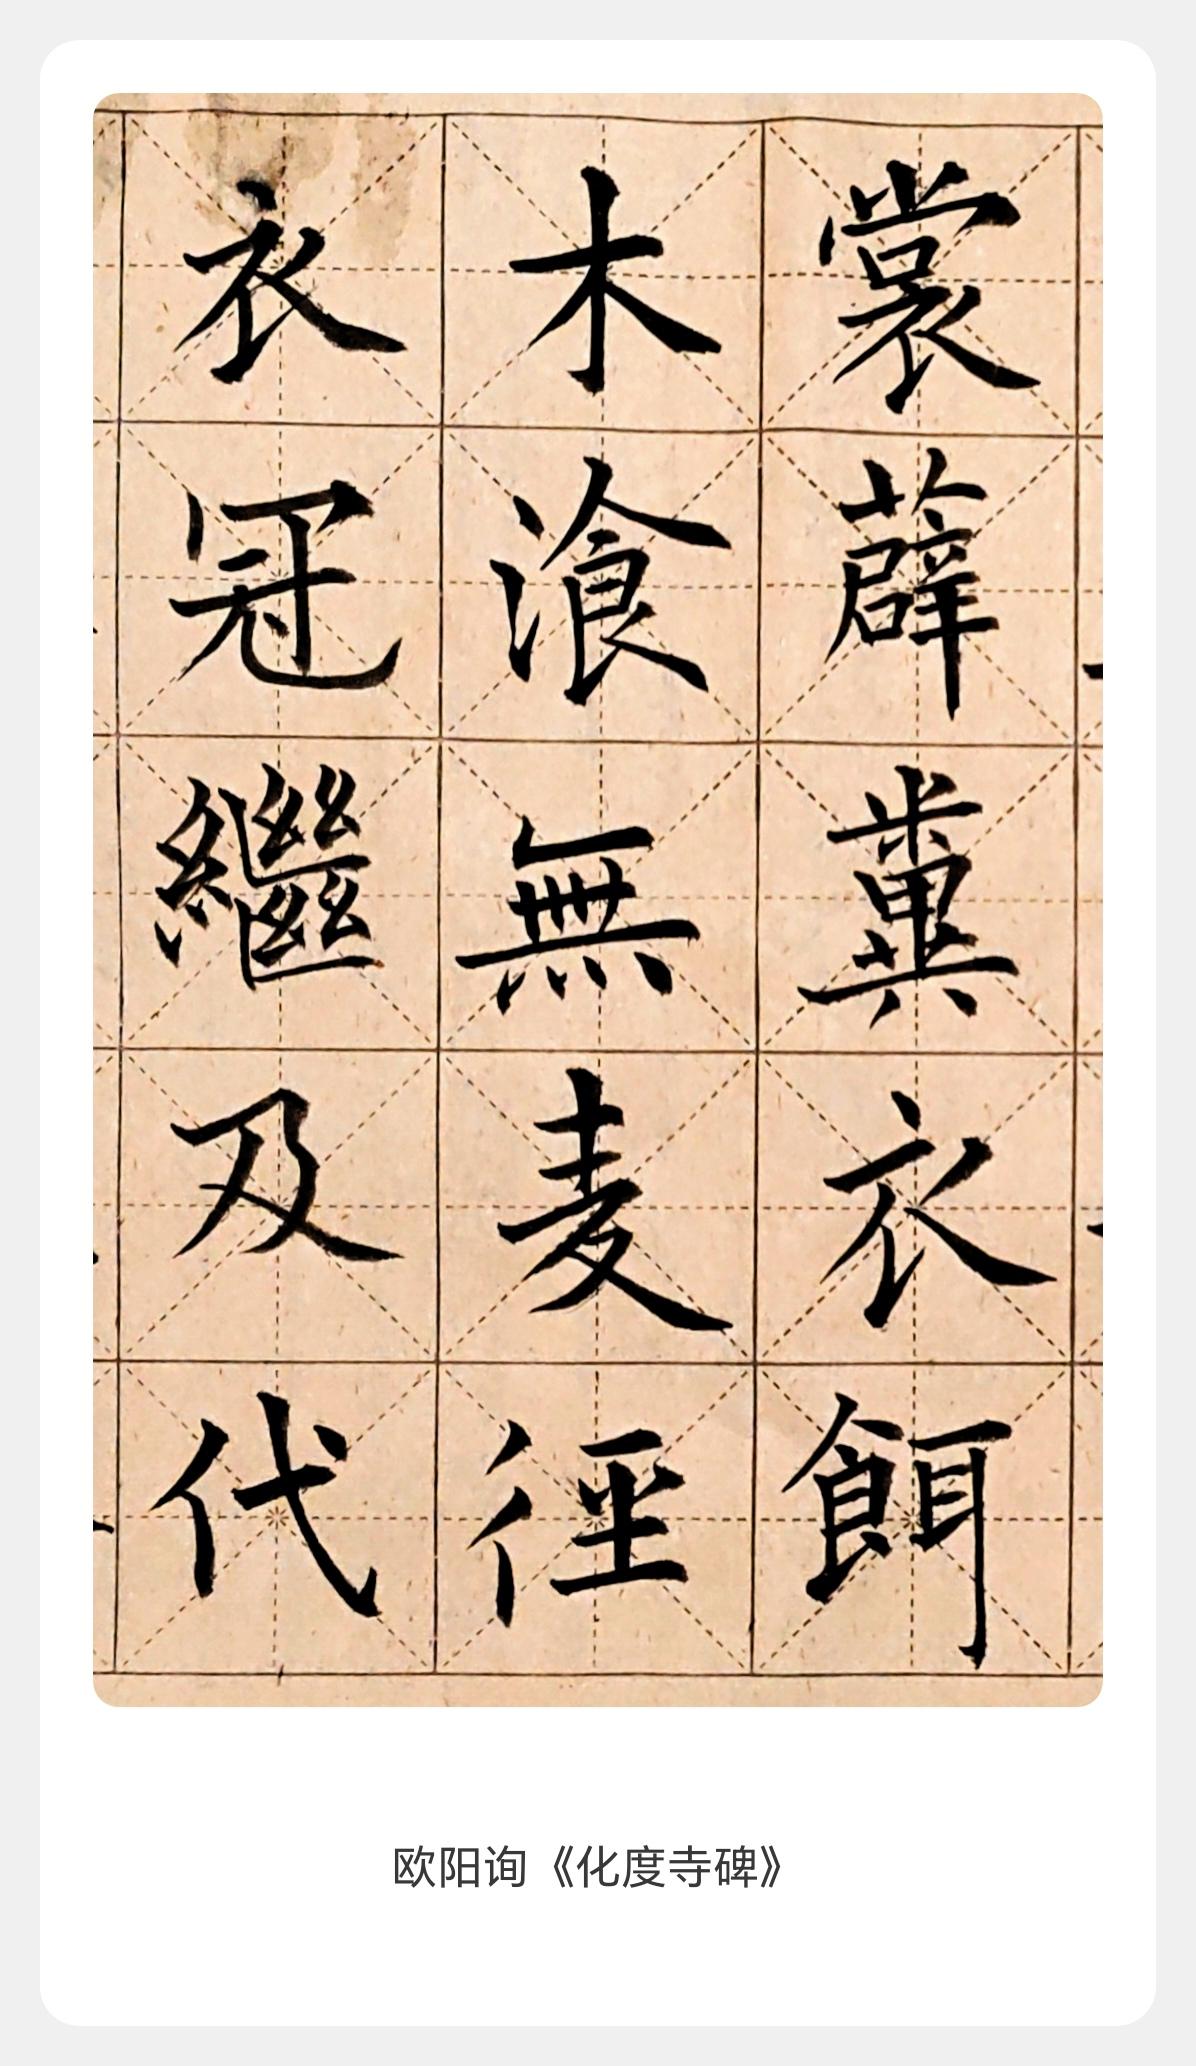 裳薜糞衣餌
木湌無麦徑
衣冠繼及代
欧阳询《化度寺碑》